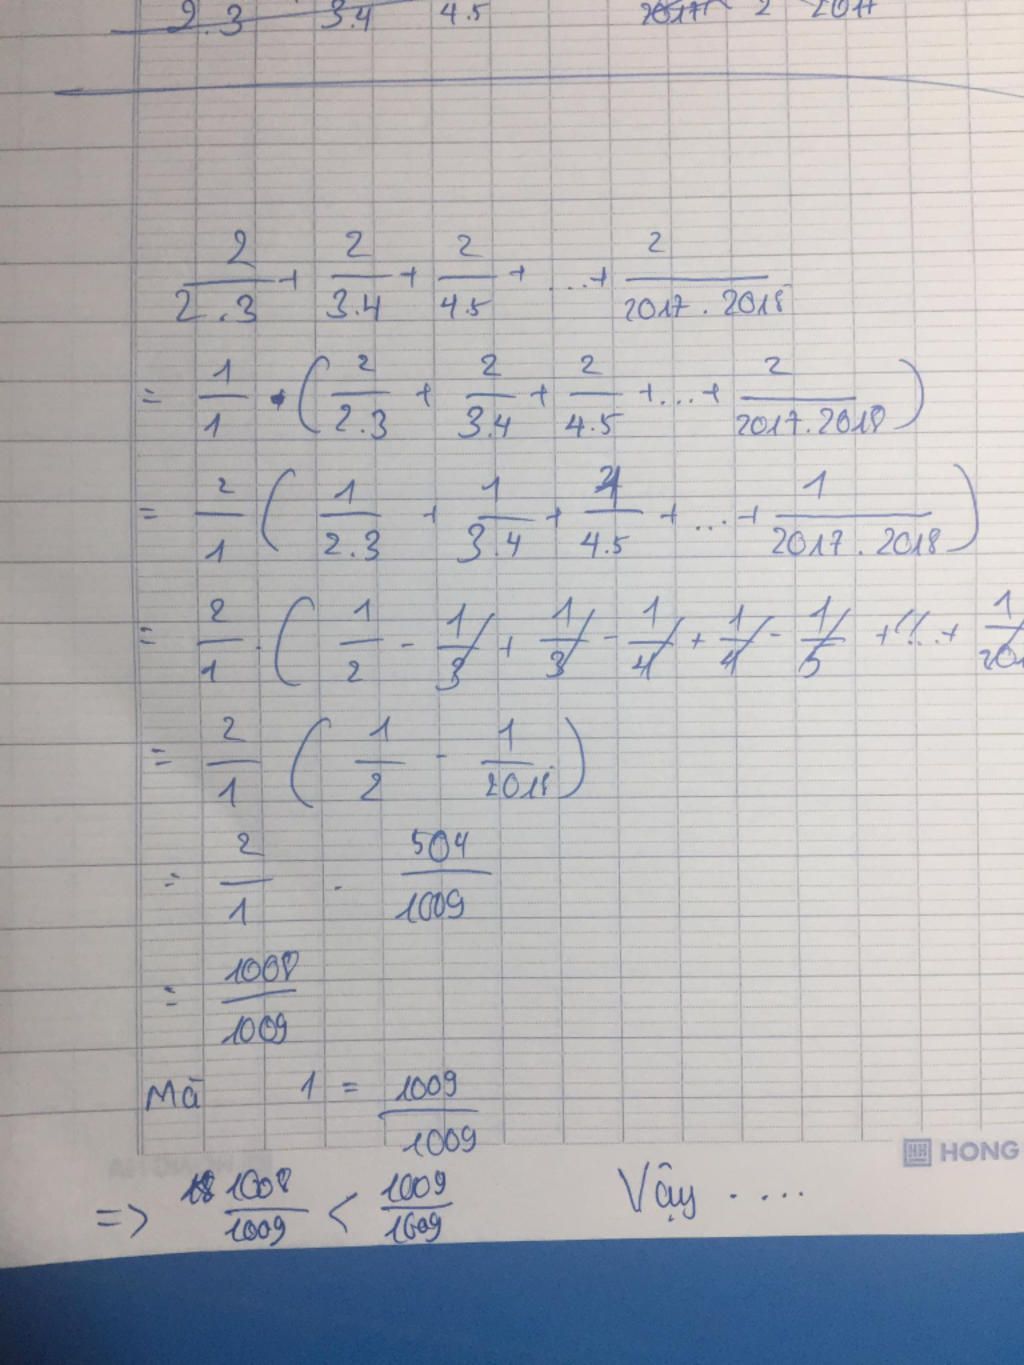 2.3 3.4 4.5 2017 2 2017
2/2.3 + 2/3.4 + 2/4.5 + ... + 2/2017.2018
= 1/1 . (2/2.3 + 2/3.4 + 2/4.5 + ... + 2/2017.2018)
= 2/1 (1/2.3 + 1/3.4 + 1/4.5 + ... + 1/2017.2018)
= 2/1 . (1/2 - 1/3 + 1/3 - 1/4 + 1/4 - 1/5 + ... + 1/201
= 2/1 (1/2 - 1/2018)
= 2/1 . 504/1009
= 1008/1009
Mà 1 = 1009/1009
HONG
=> 1008/1009 < 1009/1009 Vậy ....